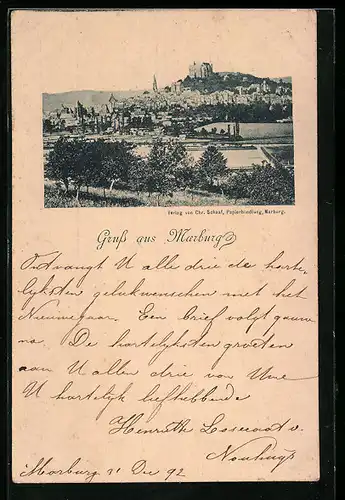 Verlag von Chr. Schaaf, Papierhandlung, Marburg.
Gruß aus Marburg
Ontvangt U alle drie de harte-
lyksten gelukwenschen met het
Nieuwejaar. Een brief volgt gauw
na. De hartelyksten groeten
aan U allen drie von Uwe
U hartelyk liefhebbende
Marburg 31 Dec 92